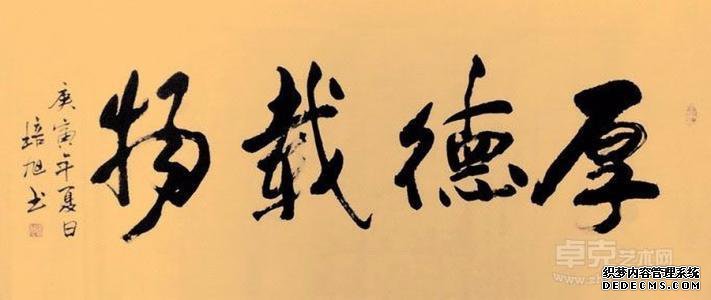 厚德载物
庚寅年夏日
培旭书
卓克艺术网
www.zh
织梦内容管理系统
DEDECMS.COM